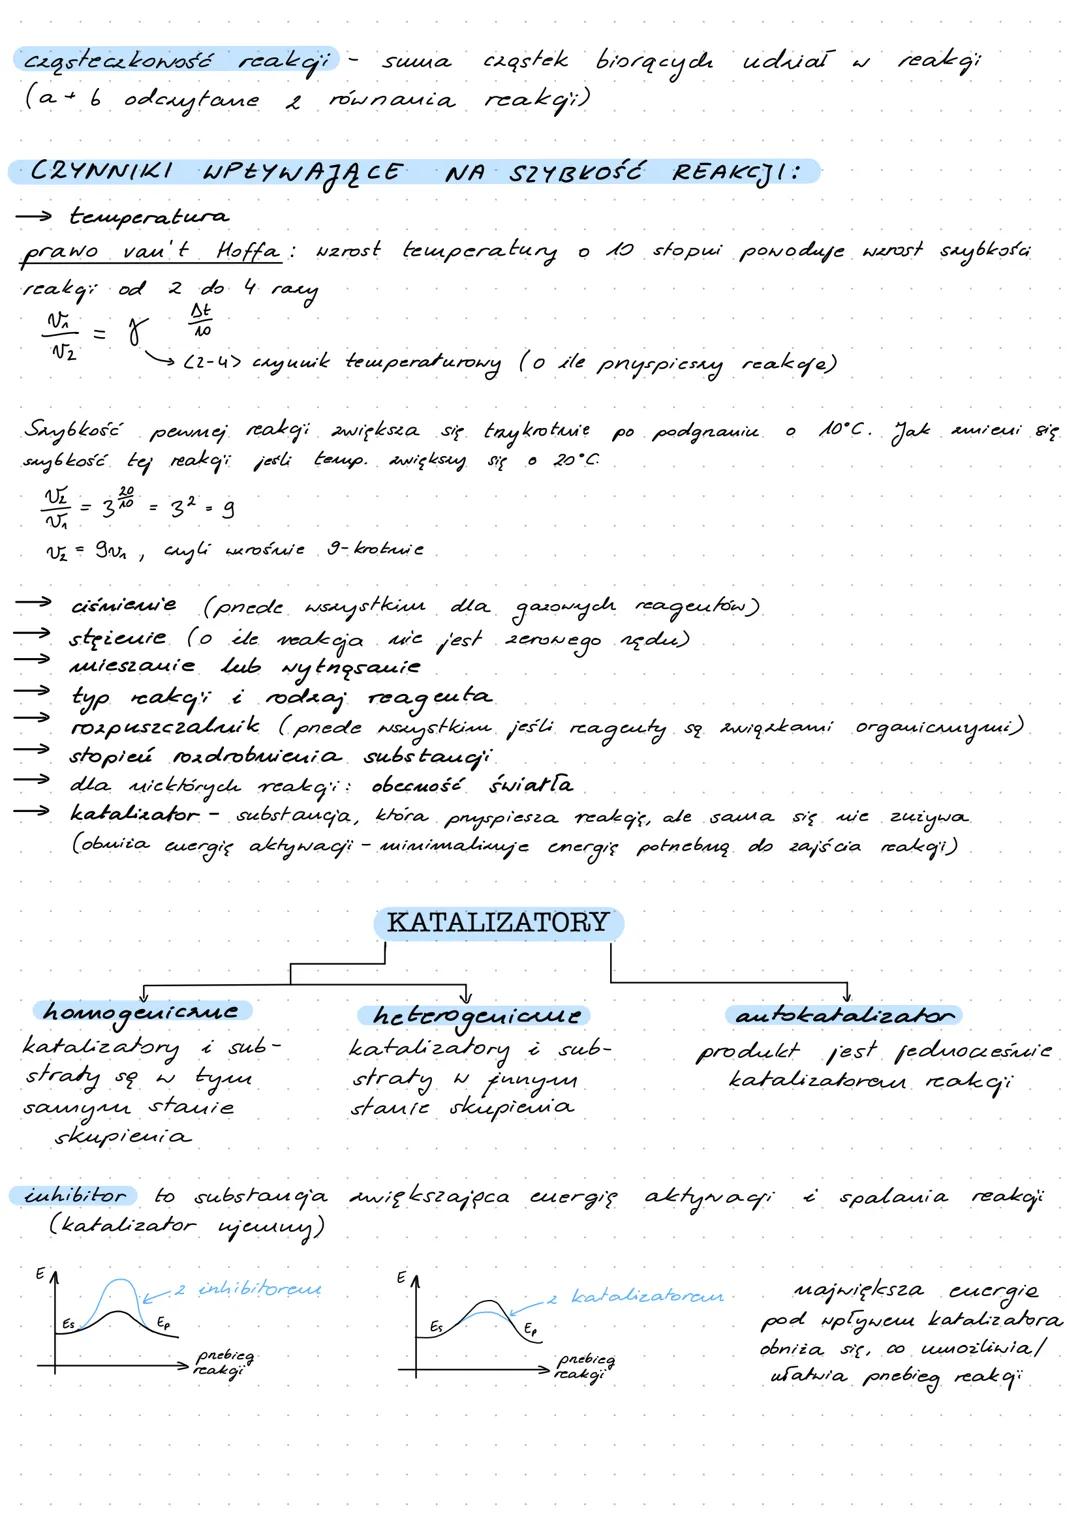 cząsteczkowość reakcji - suma cząstek biorących udział w reakcji
(a + b odczytane z równania reakcji)
CZYNNIKI WPŁYWAJĄCE NA SZYBKOŚĆ REAKCJI:
→ temperatura
prawo van't Hoffa: wzrost temperatury o 10 stopni powoduje wzrost szybkości
reakcji od 2 do 4 razy
v₁/v₂ = γ^(Δt/10)
→ <2-4> czynnik temperaturowy (o ile przyspieszy reakcję)
Szybkość pewnej reakcji zwiększa się trzykrotnie po podgrzaniu o 10°C. Jak zmieni się
szybkość tej reakcji jeśli temp. zwiększy się o 20°C.
v₂/v₁ = 3^(20/10) = 3² = 9
v₂ = 9v₁, czyli wzrośnie 9-krotnie
→ ciśnienie (przede wszystkim dla gazowych reagentów)
→ stężenie (o ile reakcja nie jest zerowego rzędu)
→ mieszanie lub wytrząsanie
→ typ reakcji i rodzaj reagenta
→ rozpuszczalnik (przede wszystkim jeśli reagenty są związkami organicznymi)
→ stopień rozdrobnienia substancji
→ dla niektórych reakcji: obecność światła
→ katalizator - substancja, która przyspiesza reakcję, ale sama się nie zużywa
(obniża energię aktywacji - minimalizuje energię potrzebną do zajścia reakcji)
KATALIZATORY
homogeniczne
katalizatory i sub-
straty są w tym
samym stanie
skupienia
heterogeniczne
katalizatory i sub-
straty w innym
stanie skupienia
autokatalizator
produkt jest jednocześnie
katalizatorem reakcji
inhibitor to substancja zwiększająca energię aktywacji i spalania reakcji
(katalizator ujemny)
E
z inhibitorem
Es
Ep
przebieg
reakcji
E
z katalizatorem
Es
Ep
przebieg
reakcji
największa energia
pod wpływem katalizatora
obniża się, co umożliwia/
ułatwia przebieg reakcji